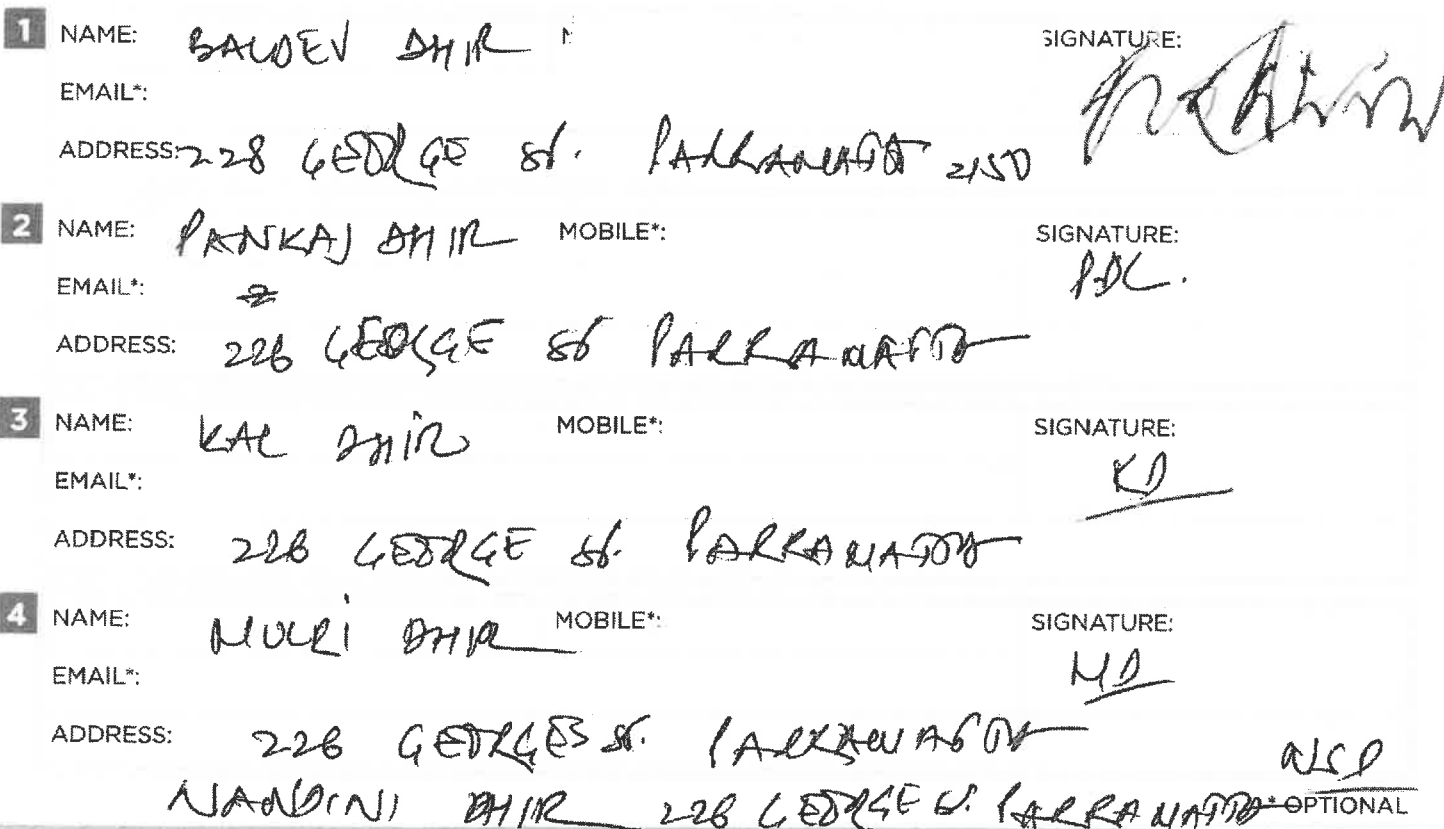 1 NAME: BALDEV DHIR SIGNATURE:
EMAIL*:
ADDRESS: 228 GEORGE St. PARRAMATTA 2150
2 NAME: PANKAJ DHIR MOBILE*: SIGNATURE:
EMAIL*:
ADDRESS: 228 GEORGE St PARRAMATTA
3 NAME: KAL DHIR MOBILE*: SIGNATURE:
KD
EMAIL*:
ADDRESS: 228 GEORGE St. PARRAMATTA
4 NAME: DHIR MOBILE*: SIGNATURE:
MD
EMAIL*:
ADDRESS: 228 St. PARRAMATTA
NANDINI DHIR 228 GEORGE St. PARRAMATTA * OPTIONAL